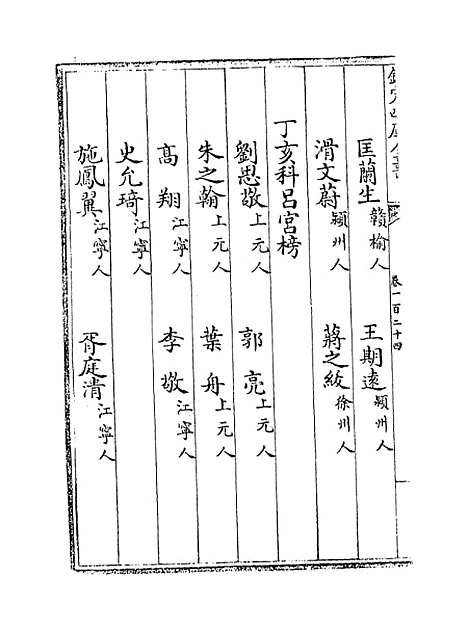 欽定四庫全書
卷一百二十四
匡蘭生贛榆人 王期遠潁州人
滑文蔚潁州人 蔣之紱徐州人
丁亥科呂宮榜
劉思敬上元人 郭亮上元人
朱之翰上元人 葉舟上元人
高翔江寧人 李敬江寧人
史允琦江寧人
施鳳翼江寧人 胥庭清江寧人